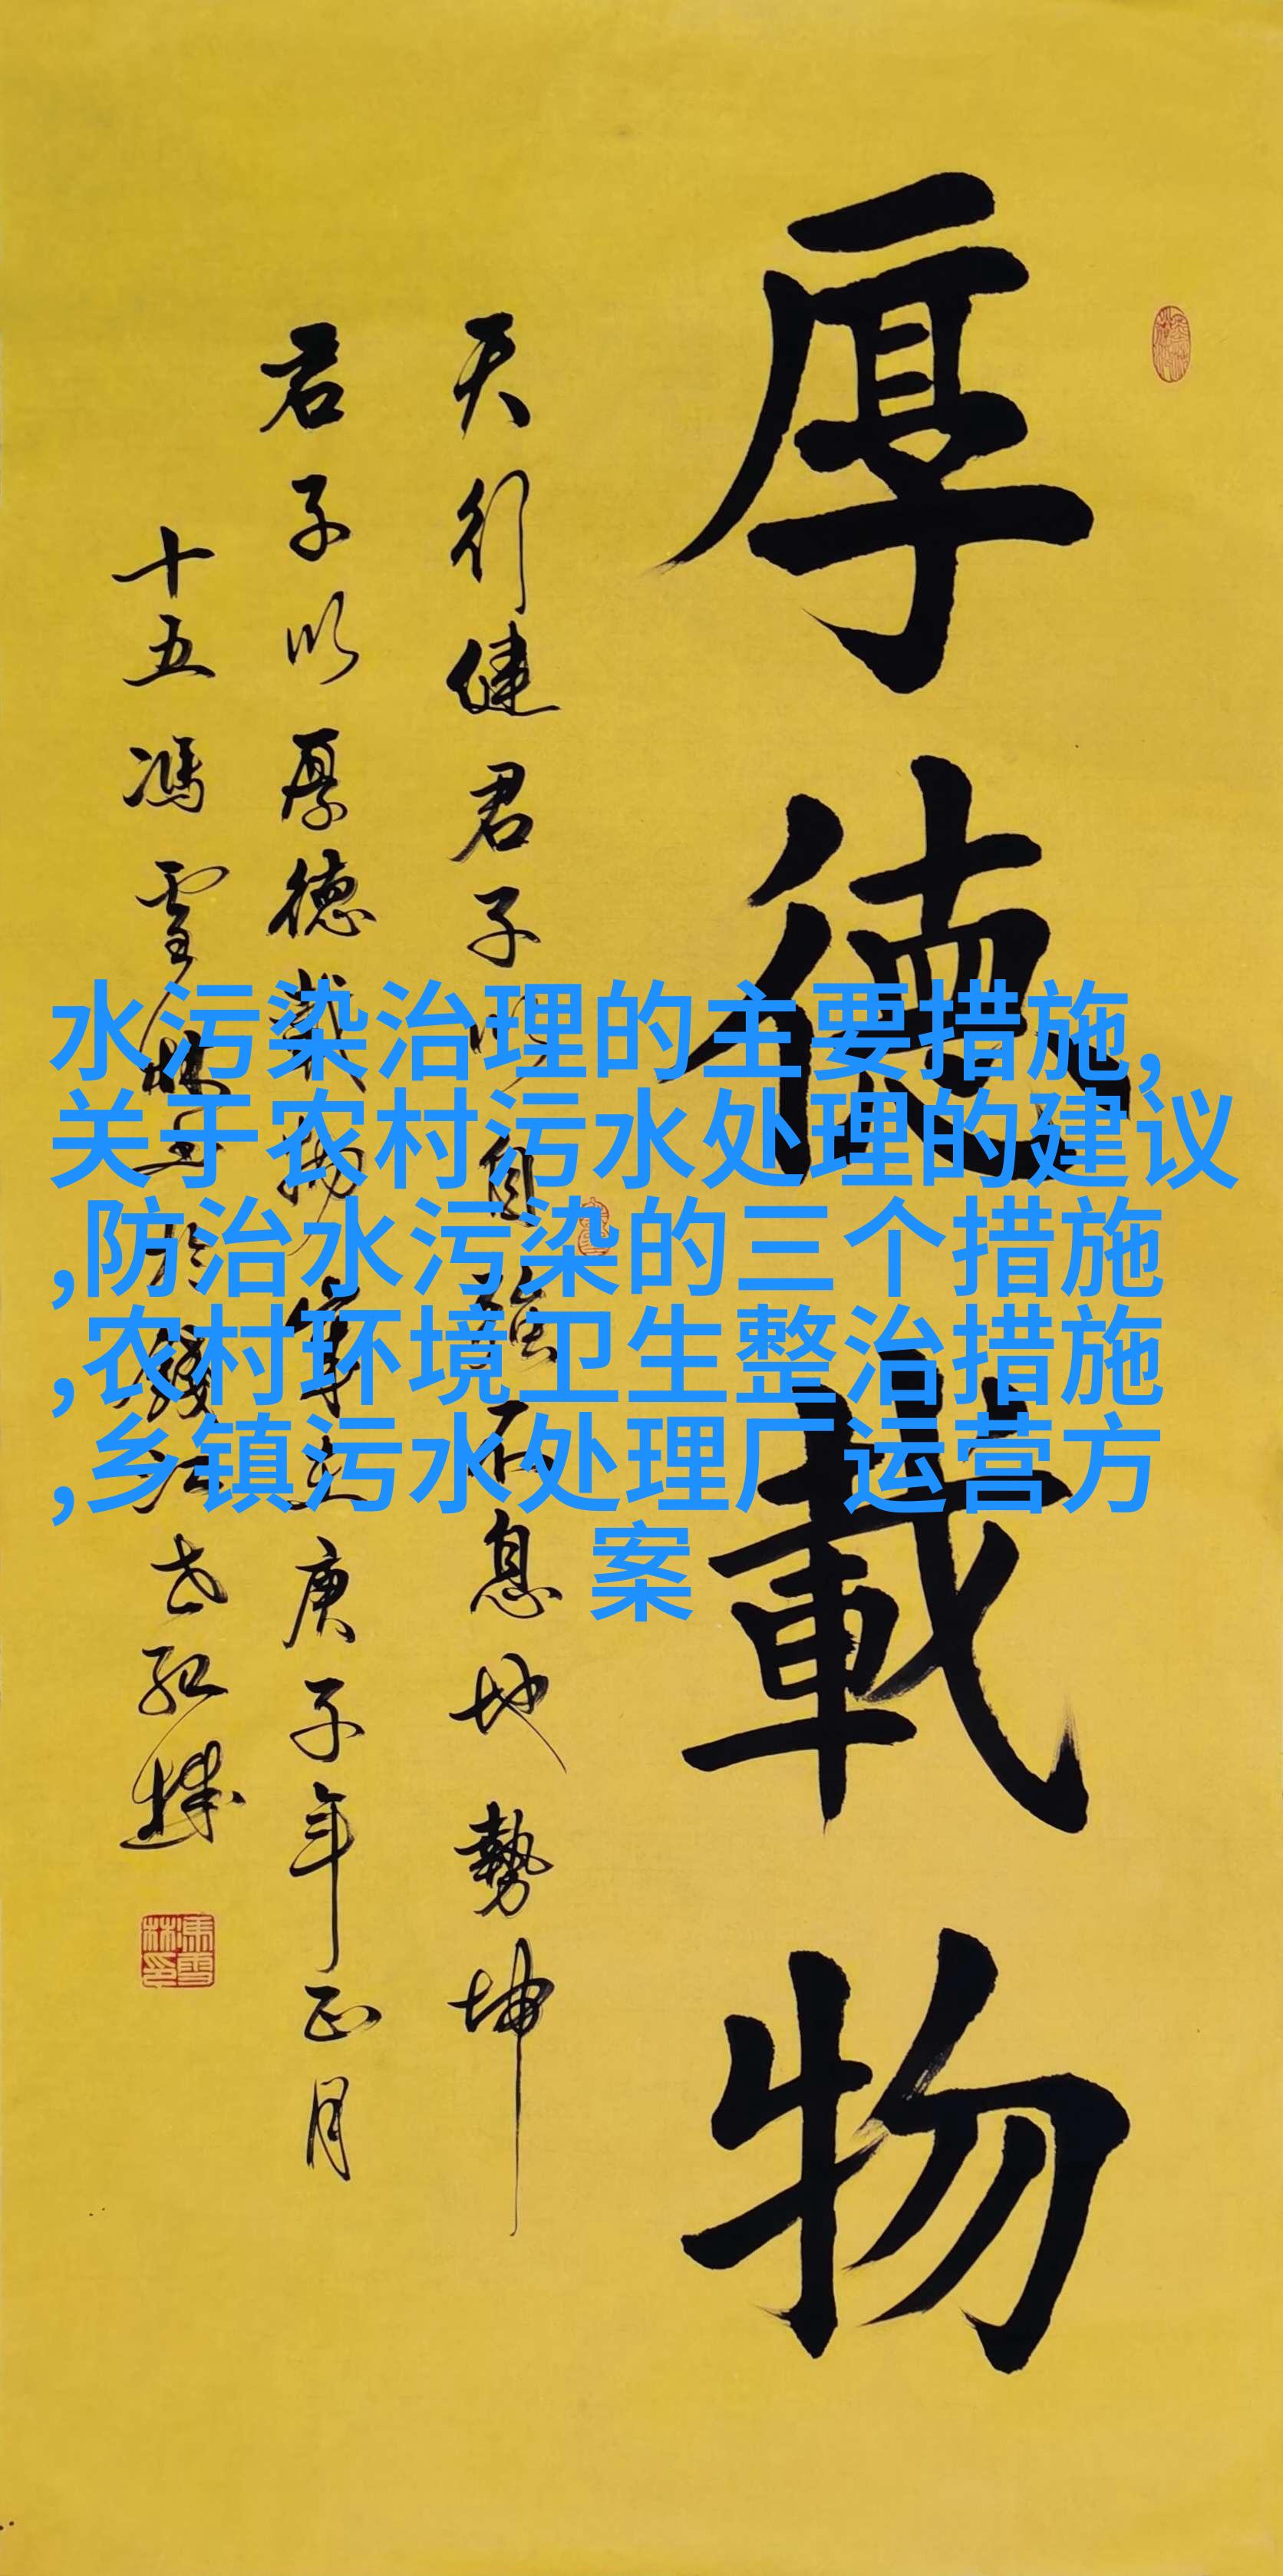 厚德載物
天行健君子以自强不息地勢坤
君子以厚德載物
庚子年正月
十五馮雪林
水污染治理的主要措施,
关于农村污水处理的建议
,防治水污染的三个措施
,农村环境卫生整治措施
,乡镇污水处理厂运营方
案